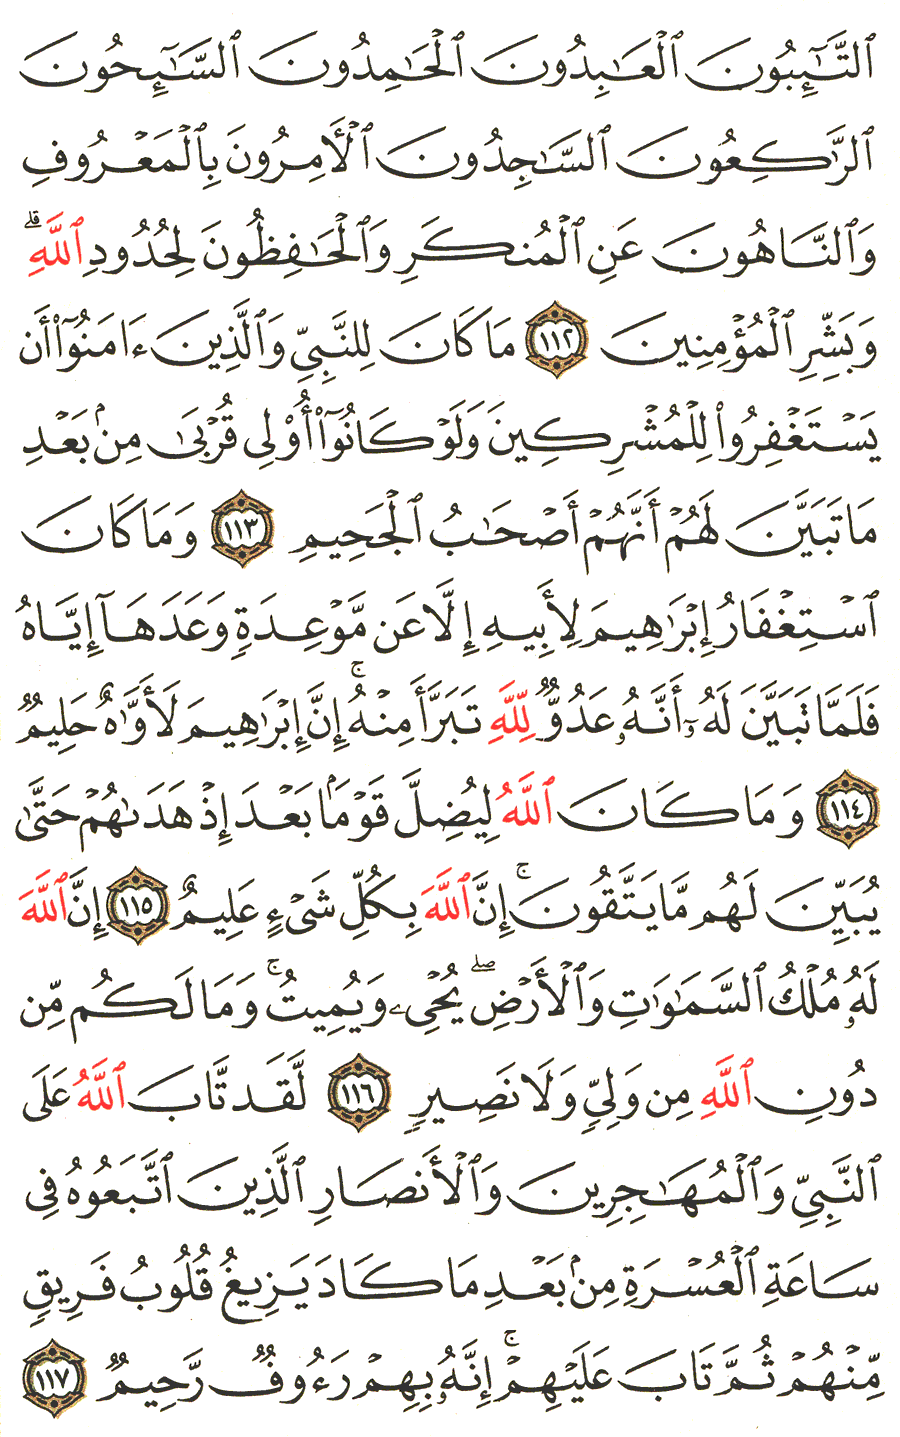 ٱلتَّـٰٓئِبُونَ ٱلْعَـٰبِدُونَ ٱلْحَـٰمِدُونَ ٱلسَّـٰٓئِحُونَ
ٱلرَّٰكِعُونَ ٱلسَّـٰجِدُونَ ٱلْأَمِرُونَ بِٱلْمَعْرُوفِ
وَٱلنَّاهُونَ عَنِ ٱلْمُنكَرِ وَٱلْحَـٰفِظُونَ لِحُدُودِ ٱللَّهِ ۗ
وَبَشِّرِ ٱلْمُؤْمِنِينَ ١١٢ مَا كَانَ لِلنَّبِىِّ وَٱلَّذِينَ ءَامَنُوٓا۟ أَن
يَسْتَغْفِرُوا۟ لِلْمُشْرِكِينَ وَلَوْ كَانُوٓا۟ أُو۟لِى قُرْبَىٰ مِنۢ بَعْدِ
مَا تَبَيَّنَ لَهُمْ أَنَّهُمْ أَصْحَـٰبُ ٱلْجَحِيمِ ١١٣ وَمَا كَانَ
ٱسْتِغْفَارُ إِبْرَٰهِيمَ لِأَبِيهِ إِلَّا عَن مَّوْعِدَةٍ وَعَدَهَآ إِيَّاهُ
فَلَمَّا تَبَيَّنَ لَهُۥٓ أَنَّهُۥ عَدُوٌّ لِّلَّهِ تَبَرَّأَ مِنْهُ ۚ إِنَّ إِبْرَٰهِيمَ لَأَوَّٰهٌ حَلِيمٌ
١١٤ وَمَا كَانَ ٱللَّهُ لِيُضِلَّ قَوْمَۢا بَعْدَ إِذْ هَدَىٰهُمْ حَتَّىٰ
يُبَيِّنَ لَهُم مَّا يَتَّقُونَ ۚ إِنَّ ٱللَّهَ بِكُلِّ شَىْءٍ عَلِيمٌ ١١٥ إِنَّ ٱللَّهَ
لَهُۥ مُلْكُ ٱلسَّمَـٰوَٰتِ وَٱلْأَرْضِ ۖ يُحْىِۦ وَيُمِيتُ ۚ وَمَا لَكُم مِّن
دُونِ ٱللَّهِ مِن وَلِىٍّ وَلَا نَصِيرٍ ١١٦ لَّقَد تَّابَ ٱللَّهُ عَلَى
ٱلنَّبِىِّ وَٱلْمُهَـٰجِرِينَ وَٱلْأَنصَارِ ٱلَّذِينَ ٱتَّبَعُوهُ فِى
سَاعَةِ ٱلْعُسْرَةِ مِنۢ بَعْدِ مَا كَادَ يَزِيغُ قُلُوبُ فَرِيقٍ
مِّنْهُمْ ثُمَّ تَابَ عَلَيْهِمْ ۚ إِنَّهُۥ بِهِمْ رَءُوفٌ رَّحِيمٌ ١١٧